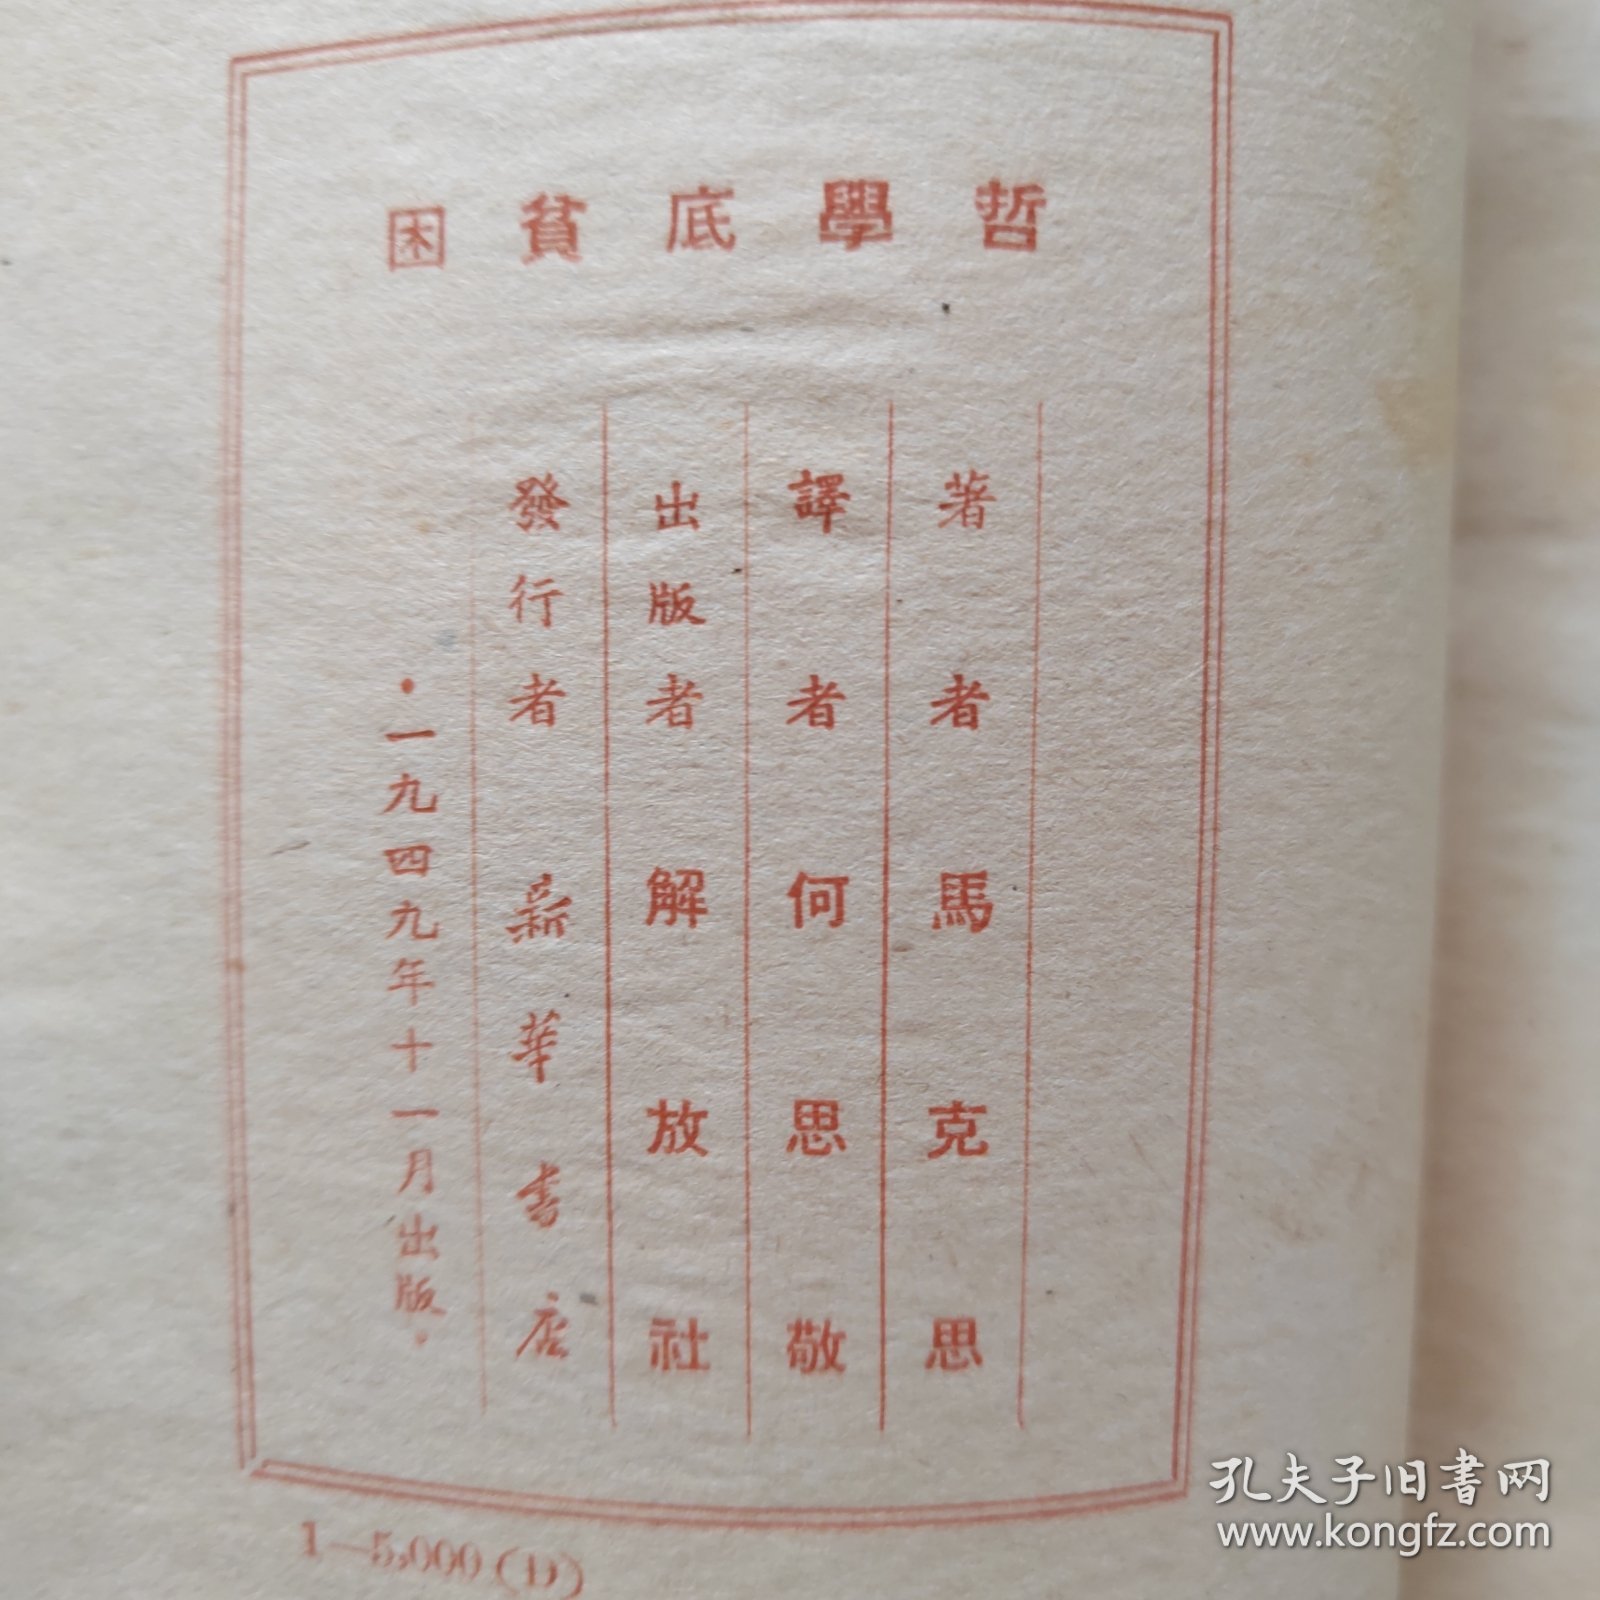 哲學底貧困
著者 馬克思
譯者 何思敬
出版者 解放社
發行者 新華書店
·一九四九年十一月出版·
1—5,000(D)
孔夫子旧書网
www.kongfz.com